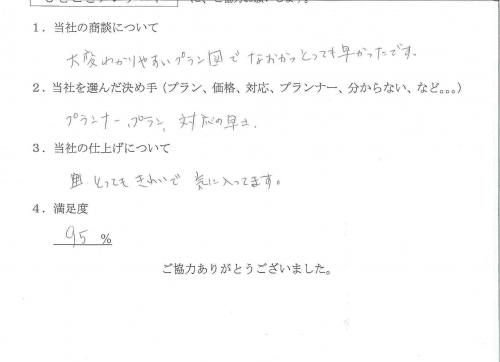 に、ご協力お願いします。
1．当社の商談について
大変わかりやすいプラン図で なおかつとっても早かったです。
2．当社を選んだ決め手（プラン、価格、対応、プランナー、分からない、など。。。）
プランナー、プラン、対応の早さ.
3．当社の仕上げについて
とっても きれいで 気に入ってます。
4．満足度
95 %
ご協力ありがとうございました。